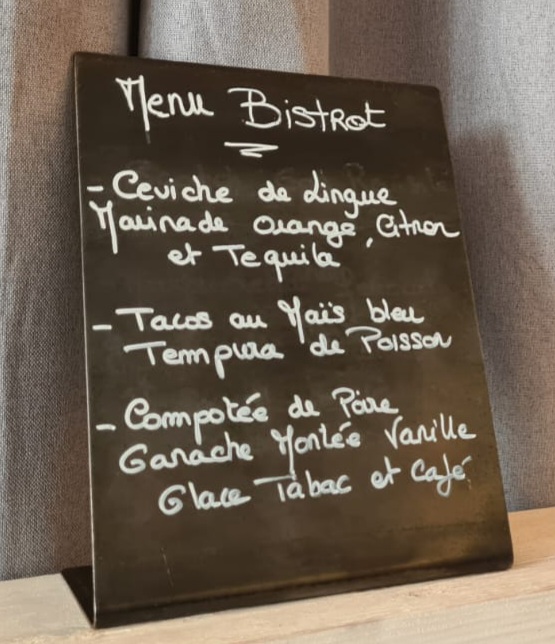 Menu Bistrot
- Ceviche de Lingue
Marinade orange, Citron
et Tequila
- Tacos au Maïs bleu
Tempura de Poisson
- Compotée de Poire
Ganache Montée Vanille
Glace Tabac et Café